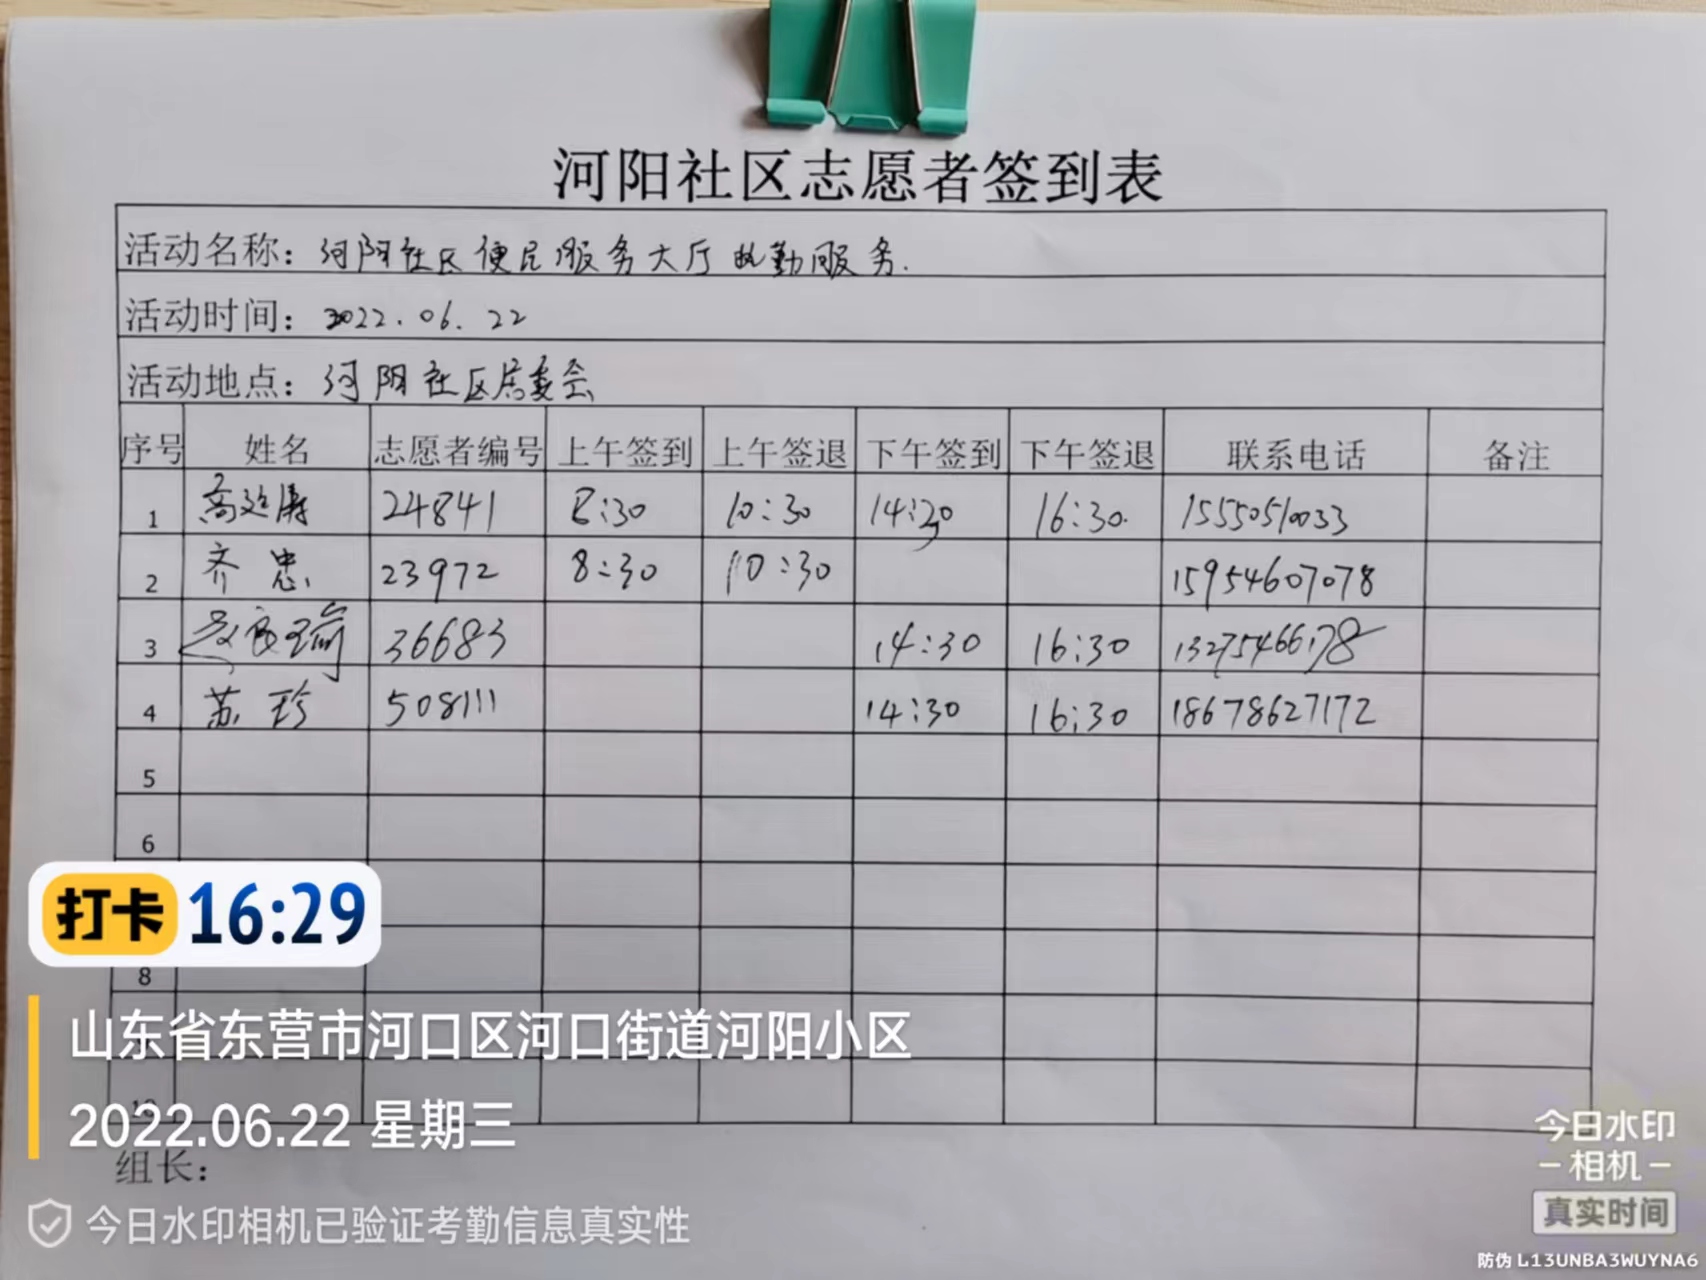 河阳社区志愿者签到表
活动名称：河阳社区便民服务大厅执勤服务.
活动时间：2022.06.22
活动地点：河阳社区居委会
序号 姓名 志愿者编号 上午签到 上午签退 下午签到 下午签退 联系电话 备注
1 24841 8:30 10:30 14:30 16:30. 15550510033
2 齐忠 23972 8:30 10:30 15954607078
3 36683 14:30 16:30 13275466178
4 苏珍 508111 14:30 16:30 18678627172
5
6
打卡 16:29
8
山东省东营市河口区河口街道河阳小区
10
2022.06.22 星期三
组长：
今日水印相机已验证考勤信息真实性
今日水印
-相机-
真实时间
防伪 L13UNBA3WUYNA6